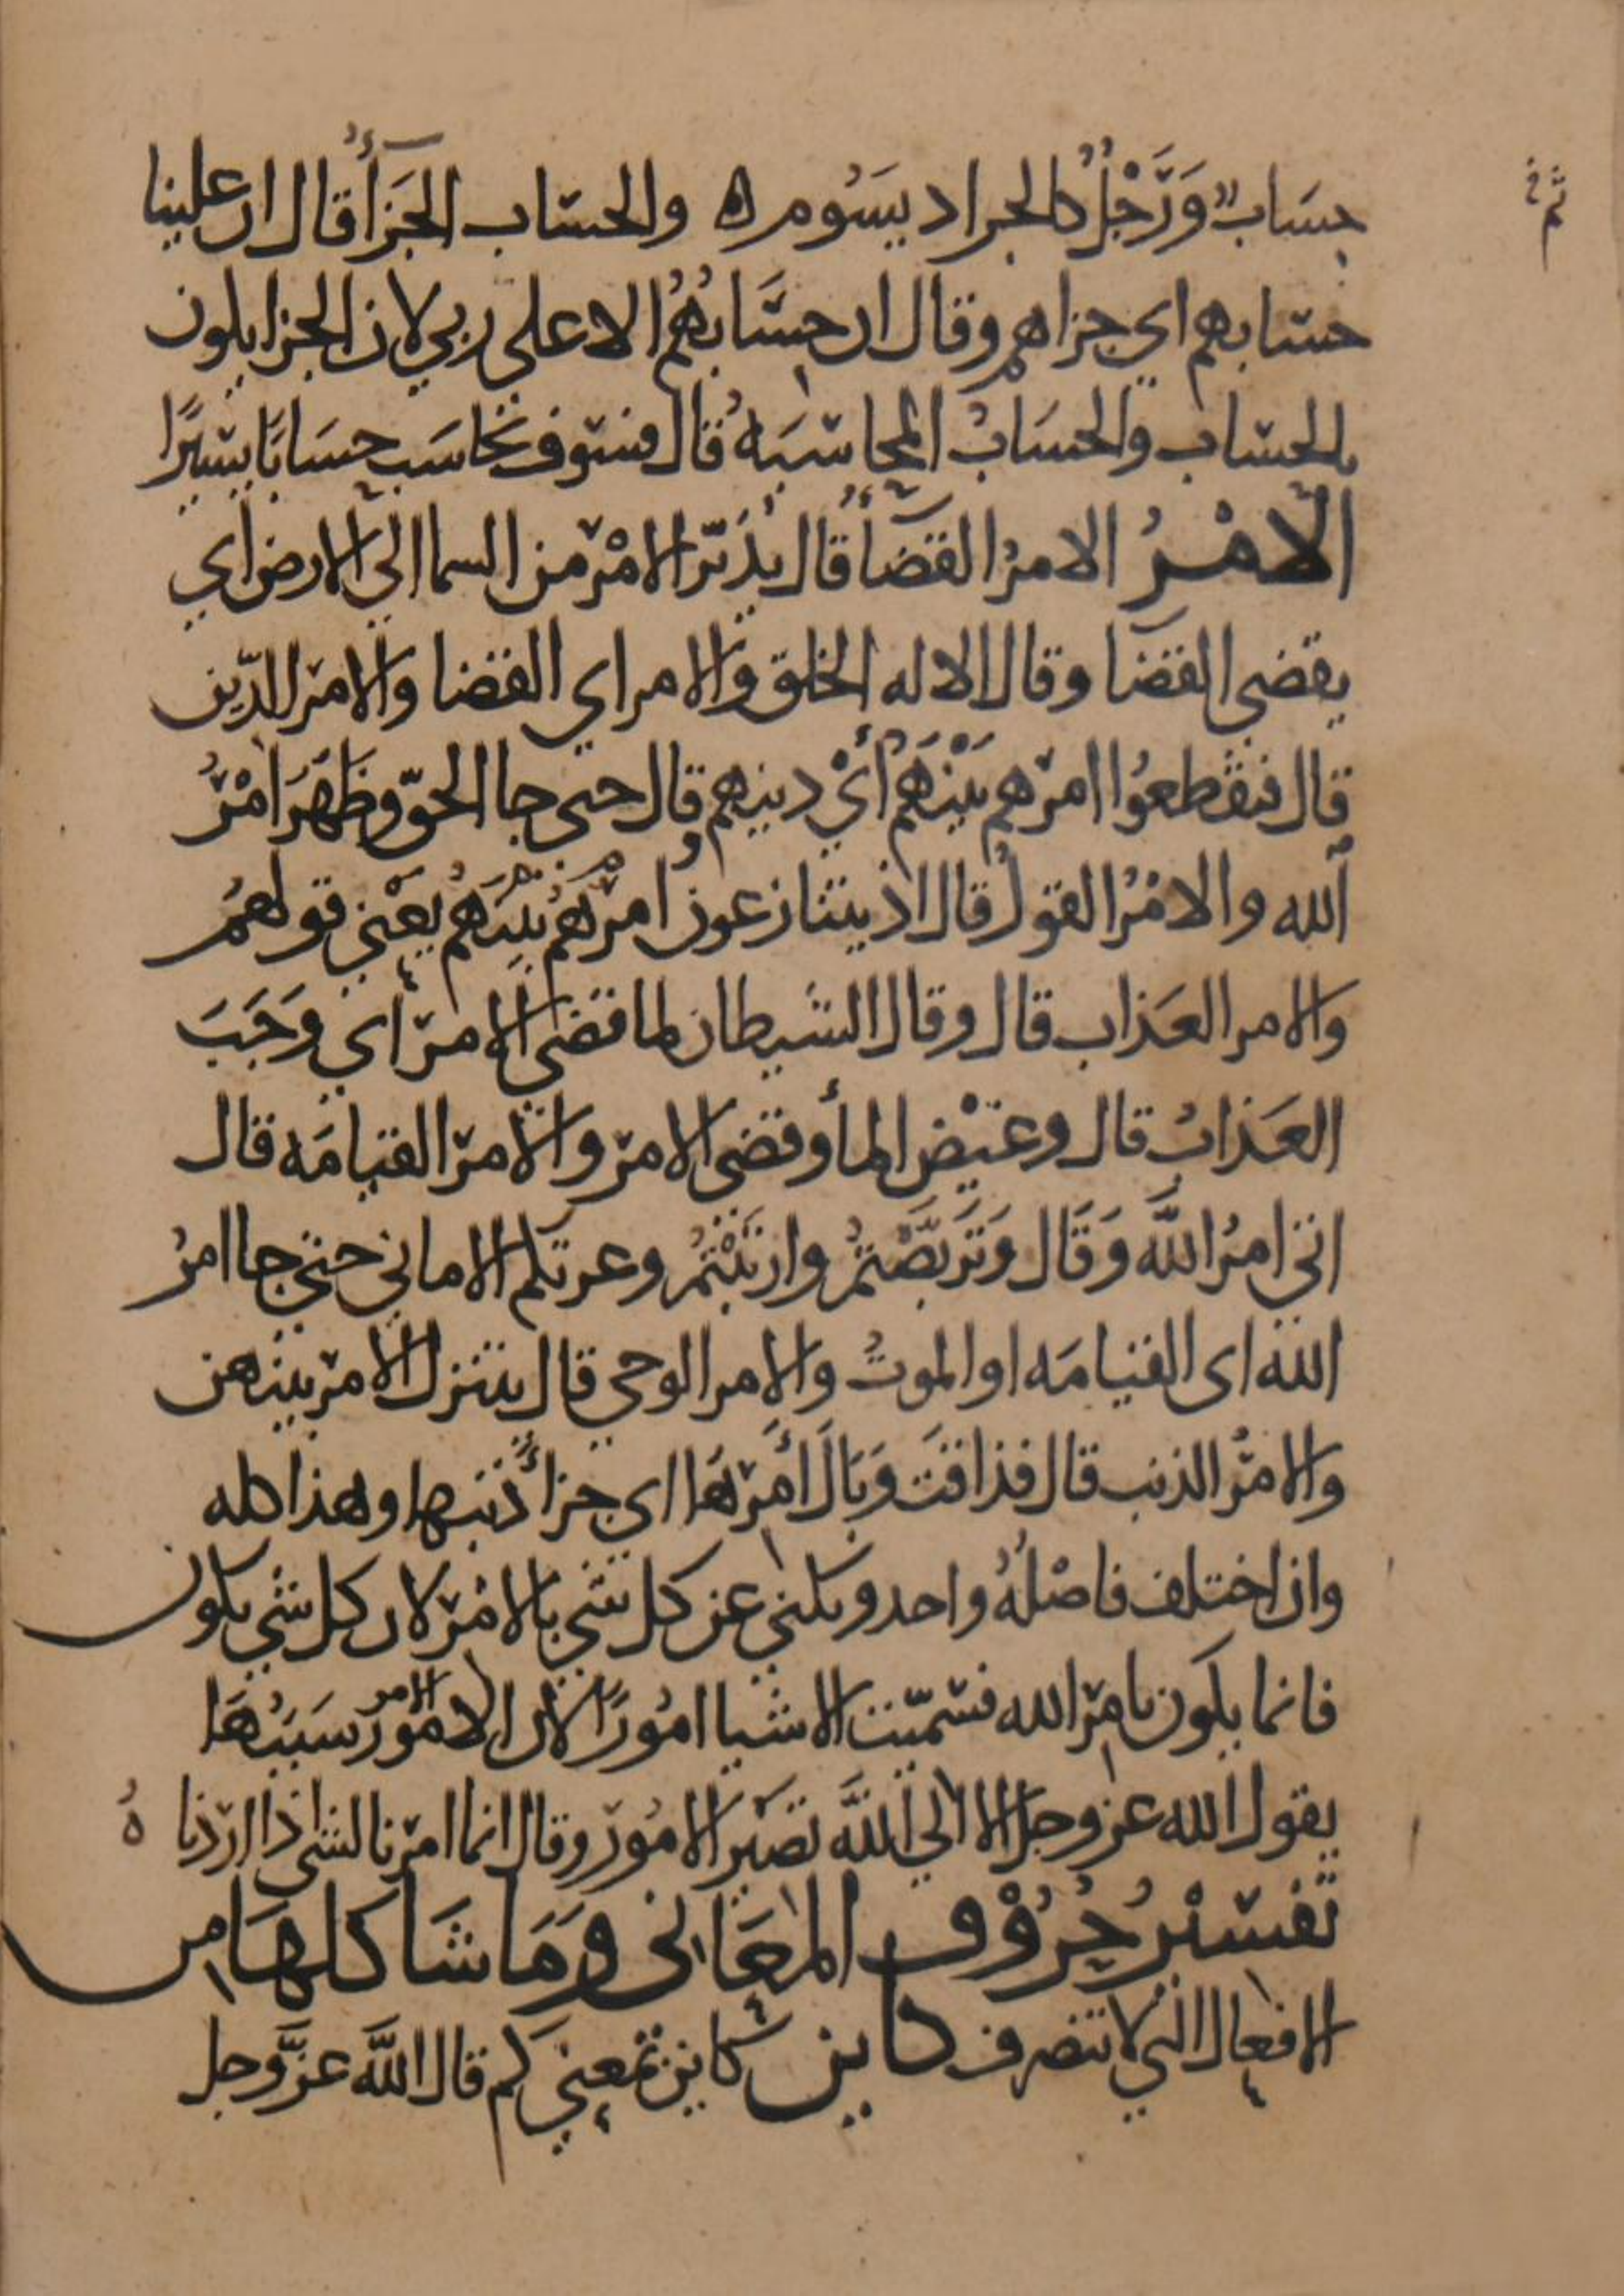 حسَاب وَرَجْلُ كالجراد يسَوم ه والحساب الجَزَأُ قال ان علينا
حسابهم اي جزاهم وقال ان حسَابُهُم الا علي ربي لان الجزا يكون
بالحساب والحسَابُ المحاسَبَهُ قال فسوف يحَاسَب حسَابًا يسيرًا
الامْرُ الامرُ القضَأُ قال يُدَبّر الامْر من السما الي الارض اي
يقضي القضَا وقال الا له الخلق والامر اي القضا والامر الدّين
قال فتقطعُوا امرهم بَيْنَهُم أيْ دينهم وقال حتى جا الحقّ وظَهَرَ امْرُ
الله والامْرُ القولُ قال اذ يتنازعون امرهُم بَينَهُم يَعْني قولهُم
والامر العَذاب قال وقال الشيطان لما قضي الامر اي وَجَبَ
العَذابُ قال وغيْض المأ وقضي الامر والامر القيامَه قال
اتي امرُ اللَّه وَقَال وَتَربَّصْتمُ وارتَبْتمُ وغرتكم الاماني حتي جا امرُ
الله اى القيامَه او الموتُ والامر الوحي قال يتنزل الامر بينهن
والامرُ الذنب قال فذاقتَ وَبَالَ أَمرهَا اي جزأَ ذَنبها وهذا كله
وان اختلف فاصْلُهُ واحد ويكني عن كل شي بالامْر لان كل شي يكون
فانما يكون بامر الله فسّميت الاشيا امُورًا لان الامُورَ الامر سَبَبُهَا
يقول الله عز وجل الا الي اللَّه تصَيْر الامُور وقال انما امرنا لشي اذا اردنا هُ
تفسيْرُ حُرُوْف المعَاني وَمَا شَاكلهَا من
الافعال التي لا تتصرف كاين كاين بمعني كم قال اللَّه عزَّ وجل